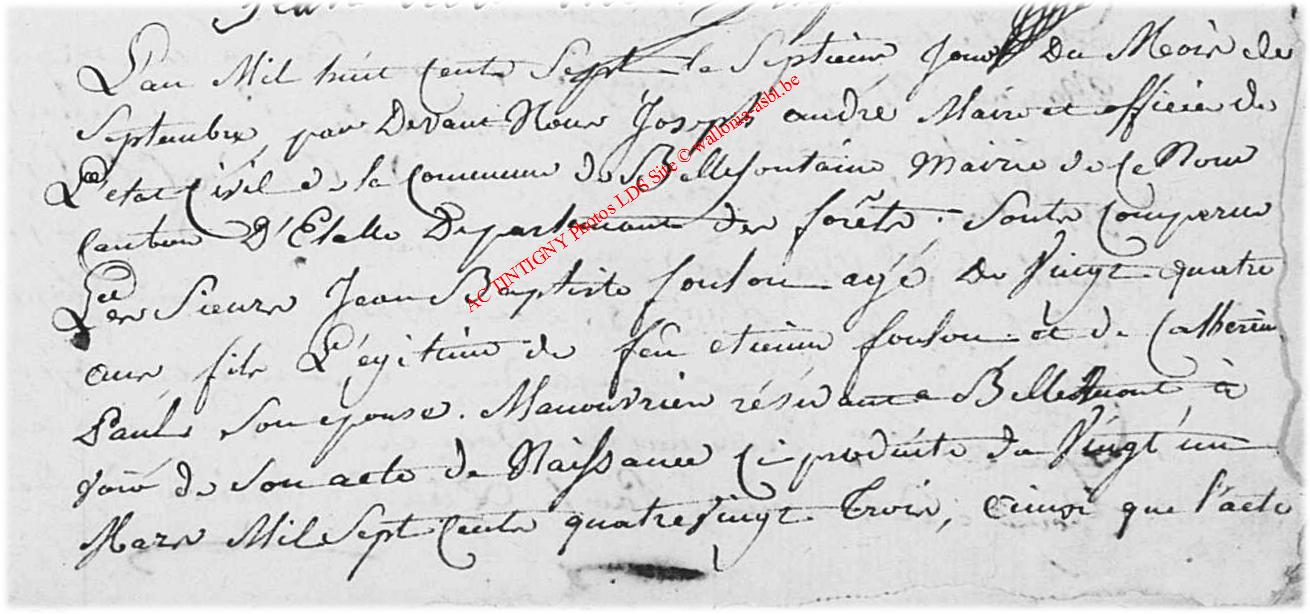 L'an Mil huit Cents Sept le Septieme Jour Du Mois de
Septembre, par Devant Nous Joseph andré Maire et officier de
L'etat Civil de la Commune de Bellefontaine Mairie de Ce Nom
Canton D'Etalle Departement des forêts. Sonts Comparus
Les Sieurs Jean Baptiste foulon agé De Vingt quatre
ans fils Légitime de feu etienne foulon et de Catherine
Paul Son epouse. Manouvrier résidant a Bellemont à
voir de Son acte de Naissance Ci produite du Vingt un
Mars Mil Sept Cents quatre Vingt Trois, Ainsi que l'acte
AC TINTIGNY Photos LDS Site © wallonia-asbl.be